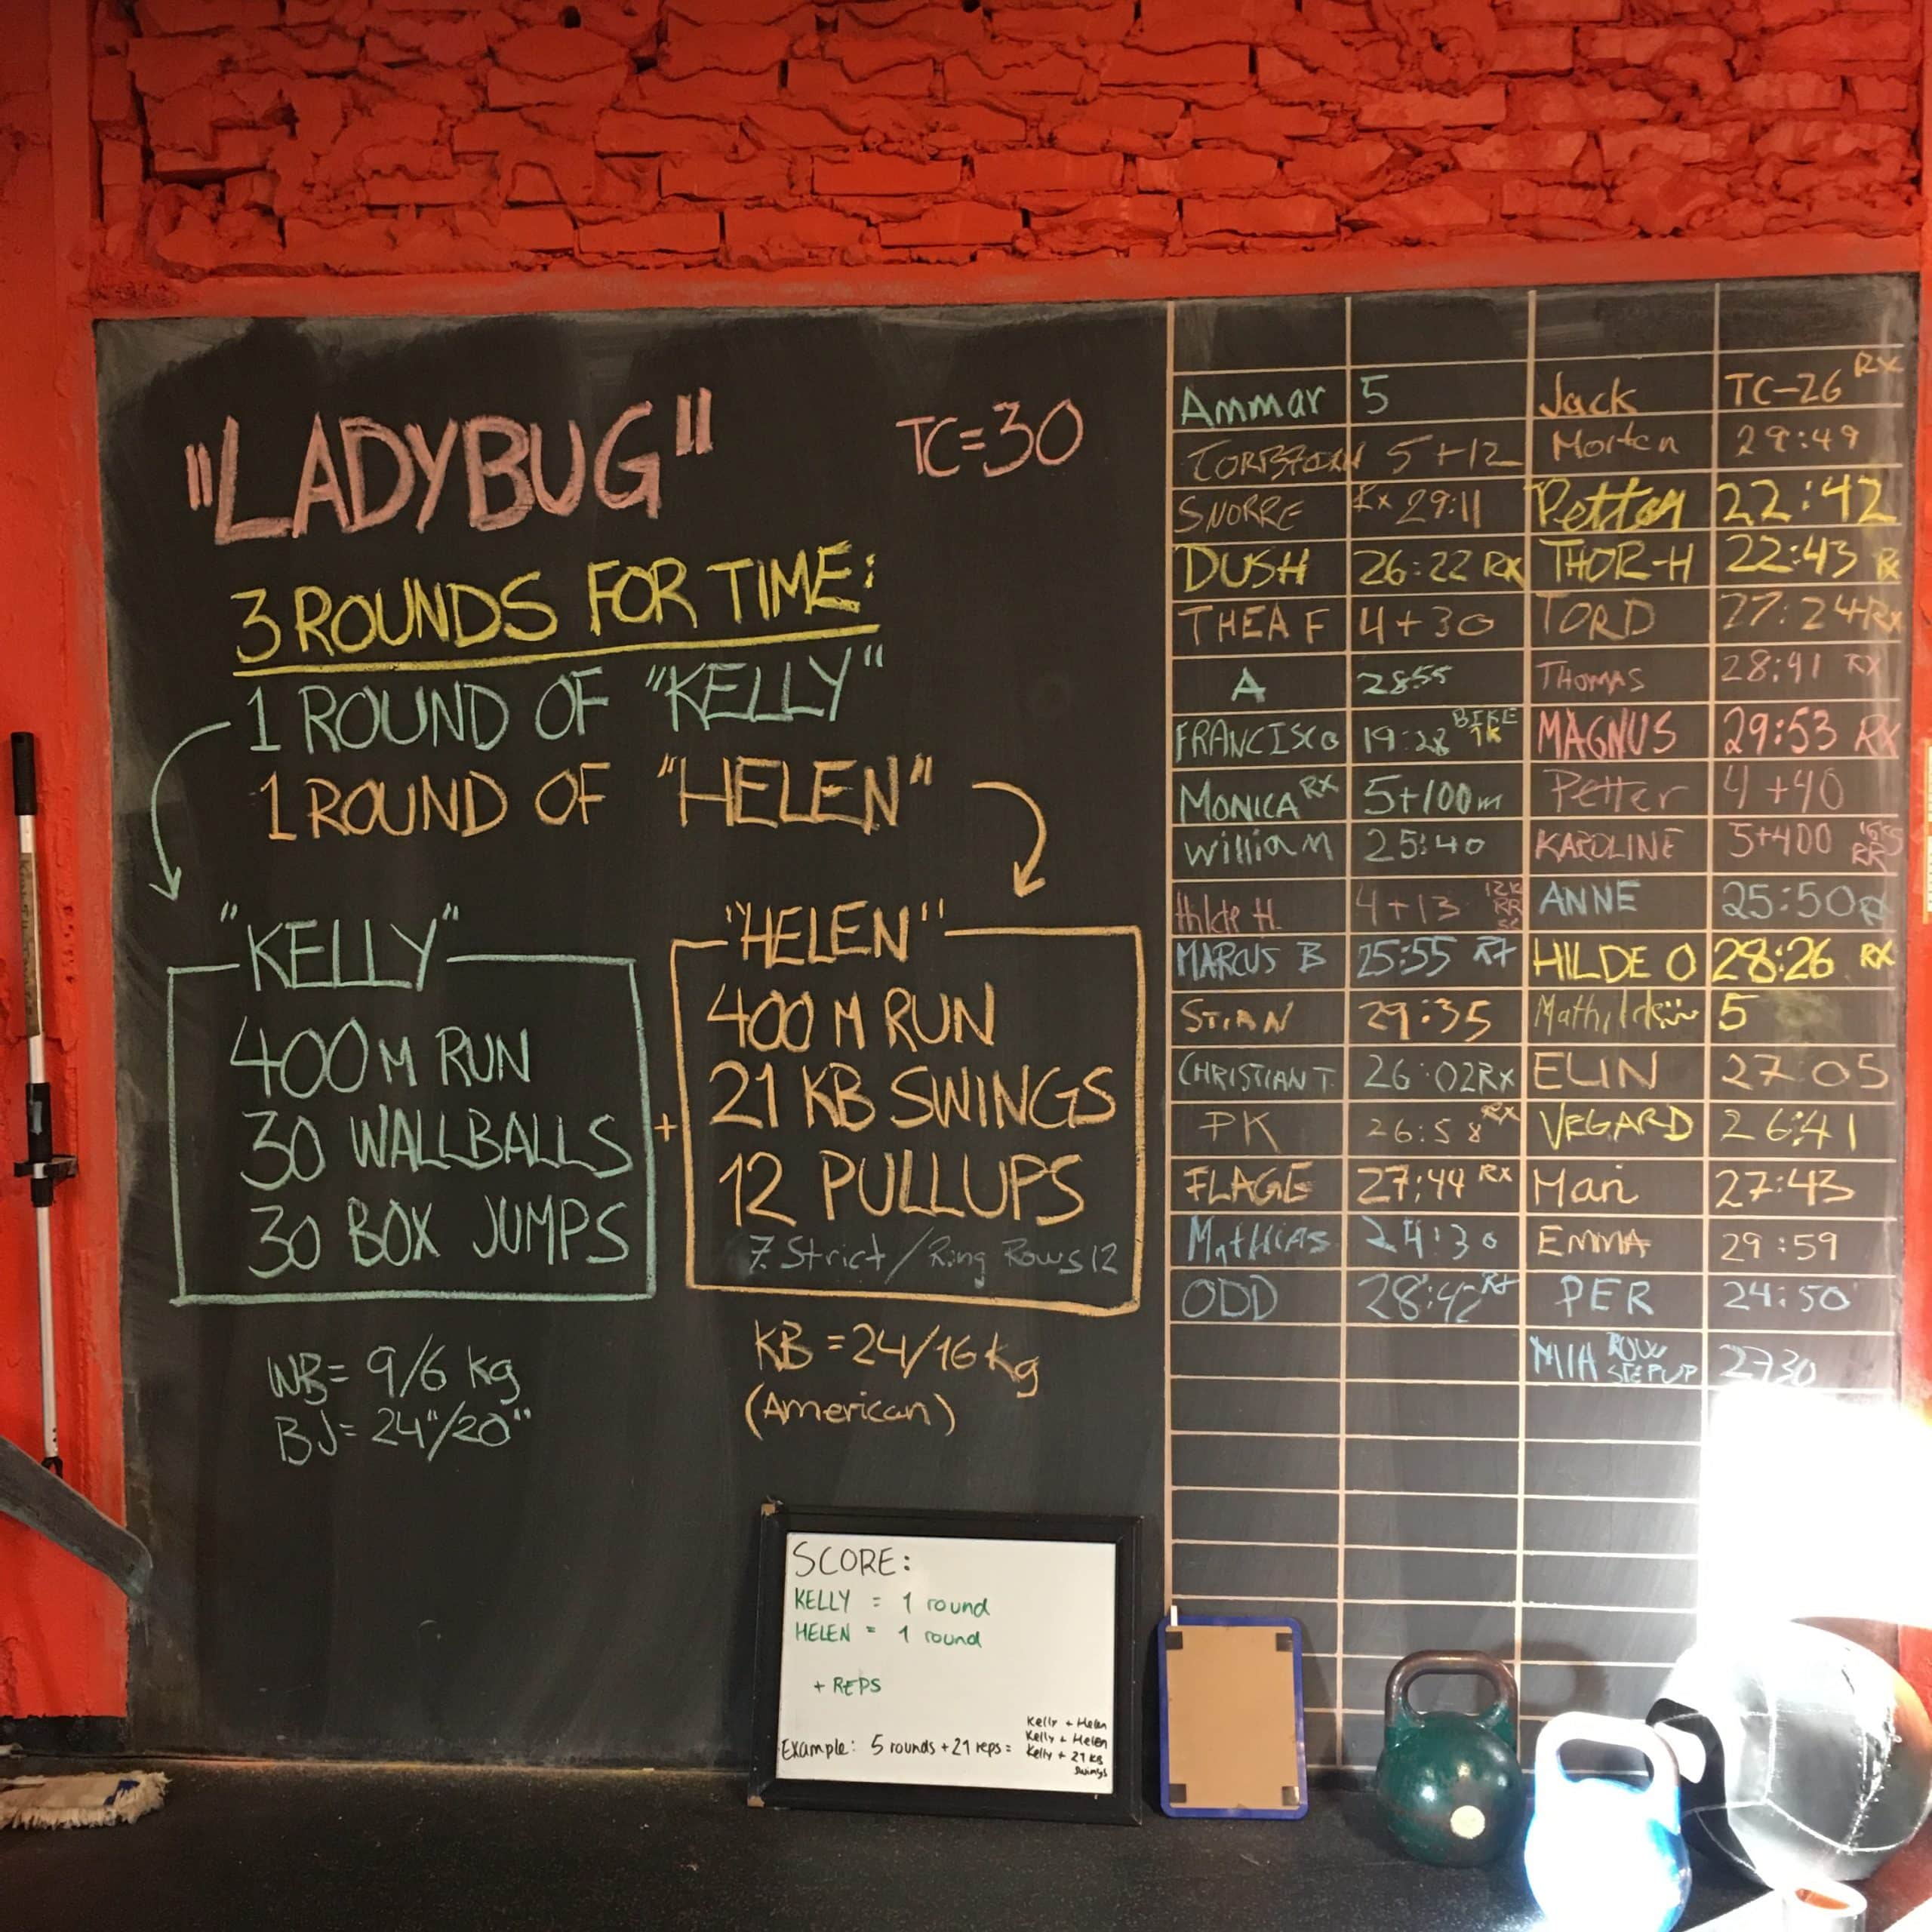 "LADYBUG" TC=30
3 ROUNDS FOR TIME:
1 ROUND OF "KELLY"
1 ROUND OF "HELEN"
"KELLY"
400 M RUN
30 WALLBALLS
30 BOX JUMPS
WB= 9/6 kg
BJ= 24"/20"
+
"HELEN"
400 M RUN
21 KB SWINGS
12 PULLUPS
7 Strict / Ring Rows 12
KB = 24/16 kg
(American)
SCORE:
KELLY = 1 round
HELEN = 1 round
+ REPS
Example: 5 rounds + 21 reps =
Kelly + Helen
Kelly + Helen
Kelly + 21 KB
Swings
Ammar 5 Jack TC-26 RX
5+12 Morten 29:49
SNORRE Rx 29:11 Petter 22:42
DUSH 26:22 RX THOR-H 22:43
THEA F 4+30 TORD 27:24 Rx
A 28:55 THOMAS 28:41 RX
FRANCISCO 19:28 BIKE MAGNUS 29:53 RX
MONICA RX 5+100m Petter 4+40
William 25:40 KAROLINE 5+400 RR
Hilde H. 4+13 12K RR ANNE 25:50
MARCUS B 25:55 RX HILDE O 28:26 RX
STIAN 29:35 Mathilde 5
CHRISTIAN T. 26:02 RX ELIN 27 05
PK 26:58 RX VEGARD 26:41
FLAGE 27:44 RX Mari 27:43
Mathias 24:30 EMMA 29:59
ODD 28:42 PER 24:50
MIA ROW STEPUP 2730